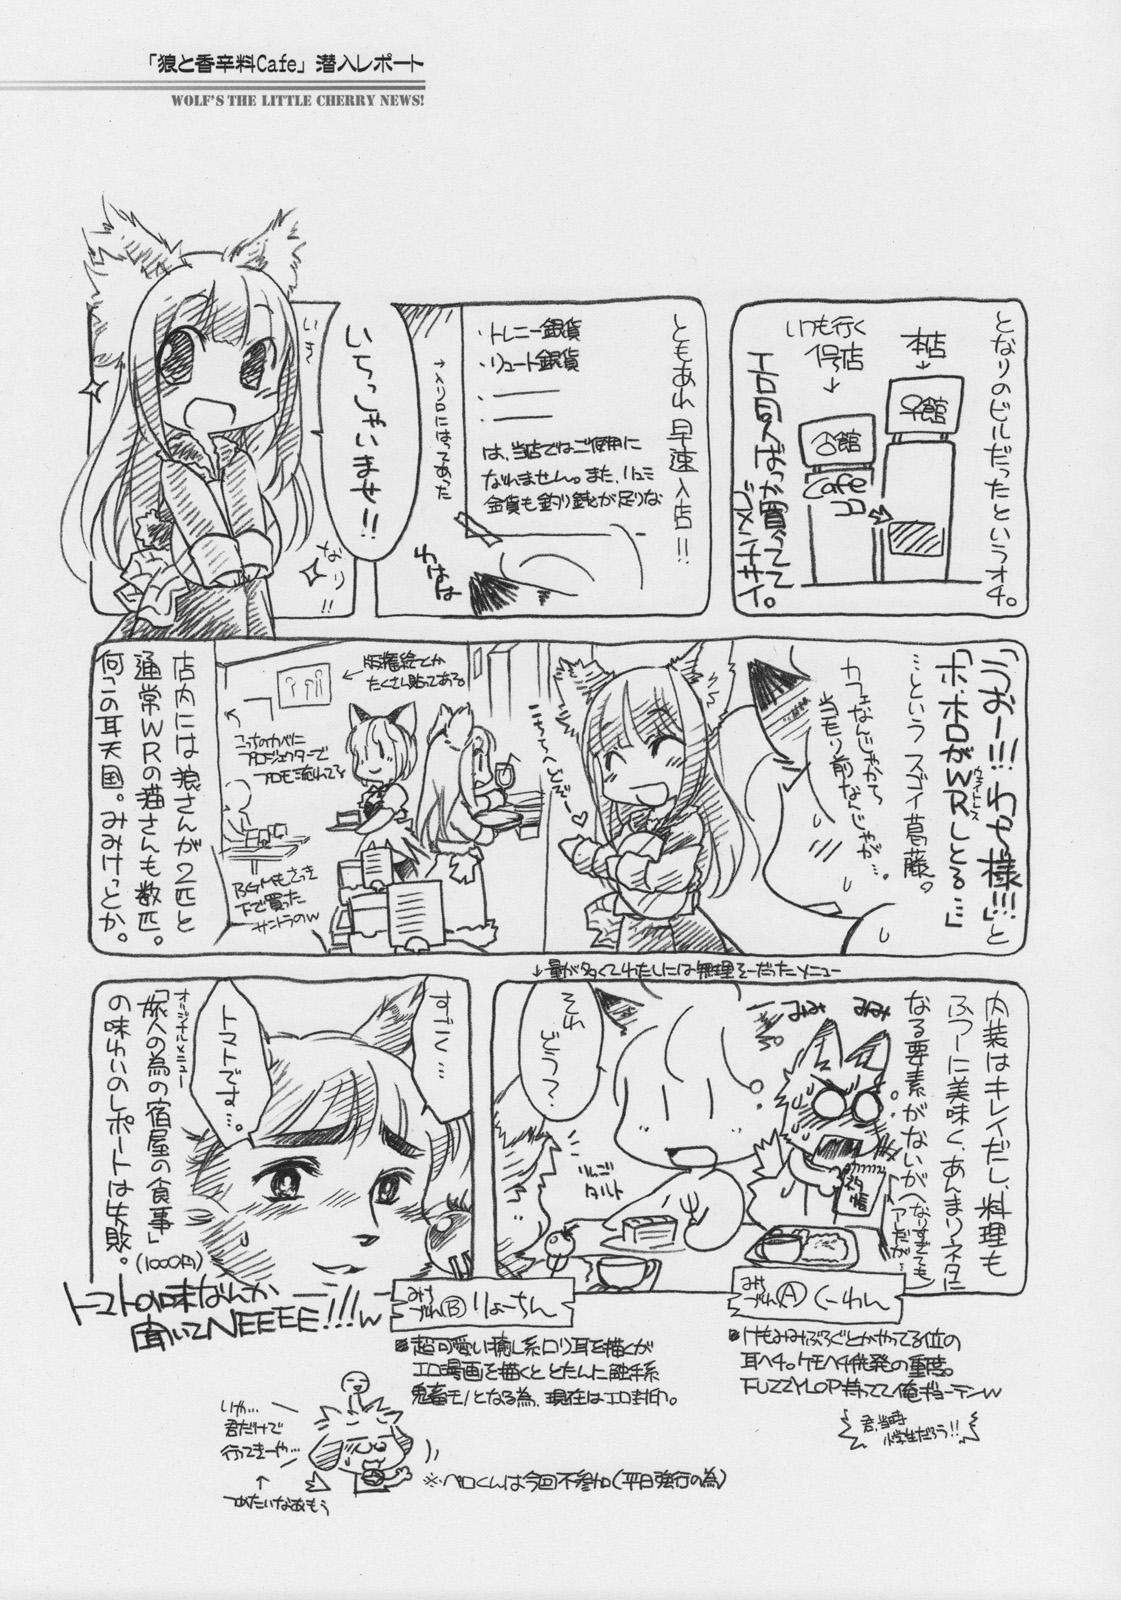 「狼と香辛料Cafe」潜入レポート
WOLF'S THE LITTLE CHERRY NEWS!
となりのビルだったというオチ。
本店
↓
いつも行く
1号店
↓
Cafe
ココ
エロ同人ばっか買ってて
ゴメンナサイ。
ともあれ早速入店!!
・トレニー銀貨
・リュート銀貨
・――
・――
は、当店ではご使用に
なれません。また、リュミ
金貨も釣り銭が足りな
→入り口にはってあった
わはは
いらっしゃいませ!!
いきなり!!
「うおー!!!わっち様!!!」と
「ホ、ホロがWRしとる…」
ウェイトレス
…という スゴイ葛藤。
カフェなんじゃから
当たり前なんじゃが…。
こちらへどぞー♥
←版権絵とか
たくさん貼ってある。
こっちのカベに
プロジェクターで
プロモ流れてる
BGMもさっき
下で買った
サントラのw
店内には狼さんが2匹と
通常WRの猫さんも数匹。
何この耳天国。みみけっとか。
↓量が多くてわたしには無理そーだったメニュー
内装はキレイだし、料理も
ふつーに美味く、あんまりネタに
なる要素がないが
(なりすぎても
アレだが…
みみ
みみ
ネタ帳
それ
どう?
りんご
タルト
みけづれⒶ くーわん
■けもみみぶろぐとかやってる位の
耳ヘチ。ケモヘチ併発の重度。
FUZZYLOP持ってて俺ギョーテンw
君、当時
小学生だろう!!
すごく…
トマトです…。
オリジナルメニュー
「旅人の為の宿屋の食事」
(1000円)
の味わいのレポートは失敗。
トマトの味なんか
聞いてNEEEE!!!w
みけづれⒷ りょーちん
■超可愛い癒し系ロリ耳を描くが
エロ漫画を描くと とたんに触手系
鬼畜モノとなる為、現在はエロ封印。
いや…
君だけで
行ってきーや…
↑
つめたいなぁもう
※ベロくんは今回不参加(平日強行の為)